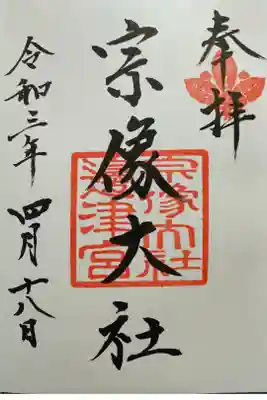 奉拝
宗像大社
宗像大社
邊津宮
令和三年 四月十八日